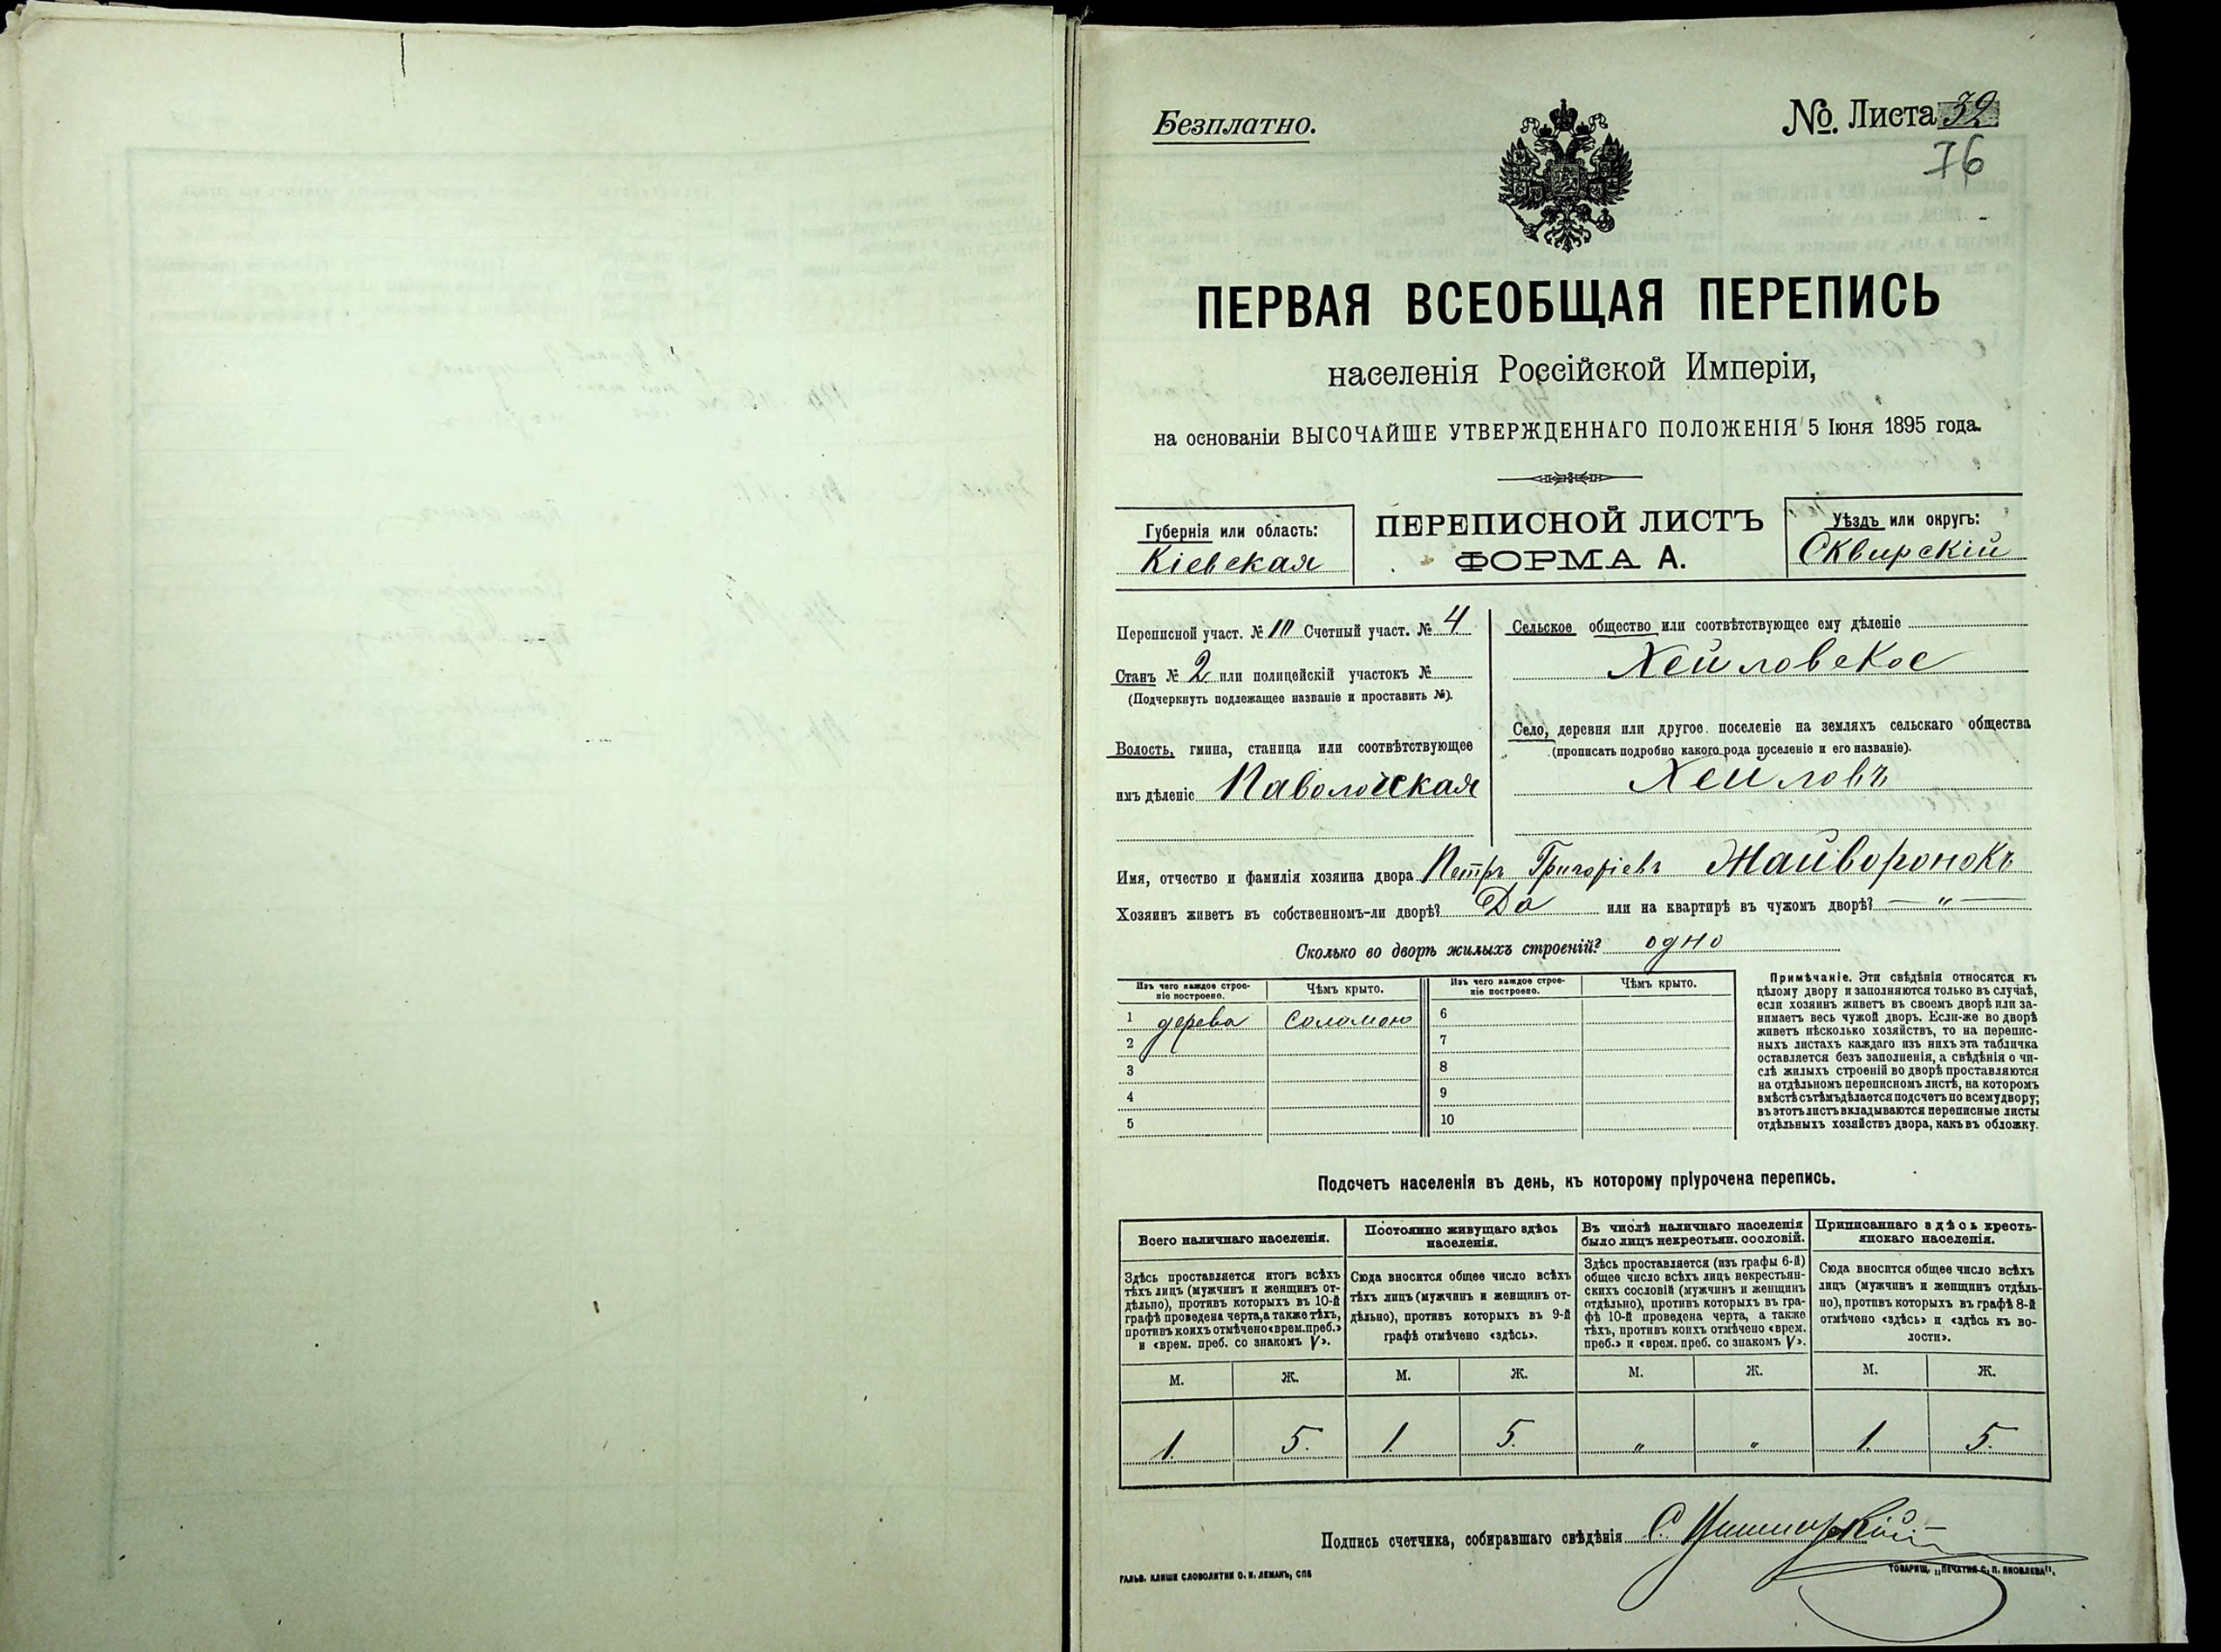 Безплатно.
№. Листа 32
76
ПЕРВАЯ ВСЕОБЩАЯ ПЕРЕПИСЬ
населенія Россійской Имперіи,
на основаніи ВЫСОЧАЙШЕ УТВЕРЖДЕННАГО ПОЛОЖЕНІЯ 5 Іюня 1895 года.
Губернія или область:
Кіевская
ПЕРЕПИСНОЙ ЛИСТЪ
ФОРМА А.
Уѣздъ или округъ:
Сквирскій
Переписной участ. № 10 Счетный участ. № 4
Станъ № 2 или полицейскій участокъ №
(Подчеркнуть подлежащее названіе и проставить №).
Волость, гмина, станица или соотвѣтствующее
имъ дѣленіе Паволочская
Сельское общество или соотвѣтствующее ему дѣленіе
Хейловское
Село, деревня или другое поселеніе на земляхъ сельскаго общества
(прописать подробно какого рода поселеніе и его названіе).
Хейловъ
Имя, отчество и фамилія хозяина двора Петръ Григоріевъ Жайворонокъ
Хозяинъ живетъ въ собственномъ-ли дворѣ? Да или на квартирѣ въ чужомъ дворѣ? — „ —
Сколько во дворѣ жилыхъ строеній? одно
Изъ чего каждое строе-
ніе построено.
Чѣмъ крыто.
Изъ чего каждое строе-
ніе построено.
Чѣмъ крыто.
1 дерева соломою 6
2 7
3 8
4 9
5 10
Примѣчаніе. Эти свѣдѣнія относятся къ
цѣлому двору и заполняются только въ случаѣ,
если хозяинъ живетъ въ своемъ дворѣ или за-
нимаетъ весь чужой дворъ. Если-же во дворѣ
живетъ нѣсколько хозяйствъ, то на перепис-
ныхъ листахъ каждаго изъ нихъ эта табличка
оставляется безъ заполненія, а свѣдѣнія о чи-
слѣ жилыхъ строеній во дворѣ проставляются
на отдѣльномъ переписномъ листѣ, на которомъ
вмѣстѣ съ тѣмъ дѣлается подсчетъ по всему двору;
въ этотъ листъ вкладываются переписные листы
отдѣльныхъ хозяйствъ двора, какъ въ обложку.
Подсчетъ населенія въ день, къ которому пріурочена перепись.
Всего наличнаго населенія.
Здѣсь проставляется итогъ всѣхъ
тѣхъ лицъ (мужчинъ и женщинъ от-
дѣльно), противъ которыхъ въ 10-й
графѣ проведена черта, а также тѣхъ,
противъ коихъ отмѣчено «врем. преб.»
и «врем. преб. со знакомъ V».
Постоянно живущаго здѣсь
населенія.
Сюда вносится общее число всѣхъ
тѣхъ лицъ (мужчинъ и женщинъ от-
дѣльно), противъ которыхъ въ 9-й
графѣ отмѣчено «здѣсь».
Въ числѣ наличнаго населенія
было лицъ некрестьян. сословій.
Здѣсь проставляется (изъ графы 6-й)
общее число всѣхъ лицъ некрестьян-
скихъ сословій (мужчинъ и женщинъ
отдѣльно), противъ которыхъ въ гра-
фѣ 10-й проведена черта, а также
тѣхъ, противъ коихъ отмѣчено «врем.
преб.» и «врем. преб. со знакомъ V».
Приписаннаго здѣсь кресть-
янскаго населенія.
Сюда вносится общее число всѣхъ
лицъ (мужчинъ и женщинъ отдѣль-
но), противъ которыхъ въ графѣ 8-й
отмѣчено «здѣсь» и «здѣсь къ во-
лости».
М. Ж. М. Ж. М. Ж. М. Ж.
1. 5. 1. 5. „ „ 1. 5.
Подпись счетчика, собиравшаго свѣдѣнія С.
ГАЛЬВ. КЛИШЕ СЛОВОЛИТНИ О. И. ЛЕМАНЪ, СПБ
ТОВАРИЩ. „ПЕЧАТНЯ С. П. ЯКОВЛЕВА".